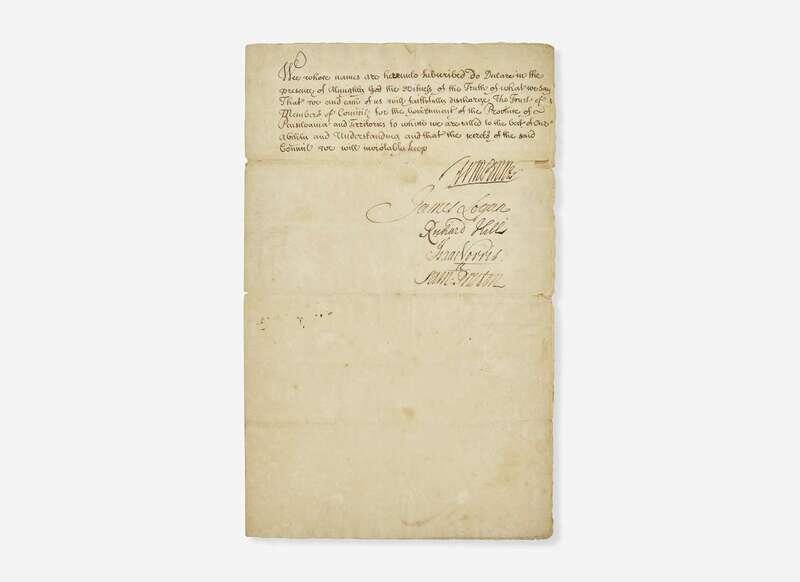 Wee whose names are hereunto Subscribed do Declare in the
presence of Almighty God the Witness of the Truth of what we Say
That we and each of us will faithfully discharge The Trust of
Members of Council for the Governmt of the Province of
Pensilvania and Territories to which we are called to the best of Our
Abilities and Understanding and that the secrets of the said
Council we will inviolably keep
Wm Penn
James Logan
Richard Hill
Isaac Norris
Sam Preston